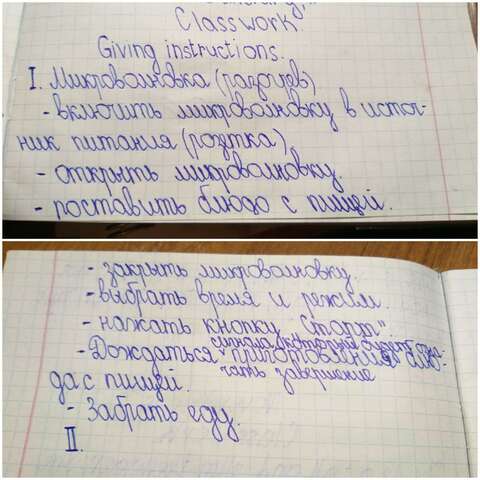 Classwork.
Giving instructions.
I. Микроволновка (разогрев)
- включить микроволновку в источ-
ник питания (розетка)
- открыть микроволновку.
- поставить блюдо с пищей.
- закрыть микроволновку.
- выбрать время и режим.
- нажать кнопку "Старт"
сигнала, который будет озна-
- Дождаться приготовления блю-
чать завершение
да с пищей.
- Забрать еду.
II.